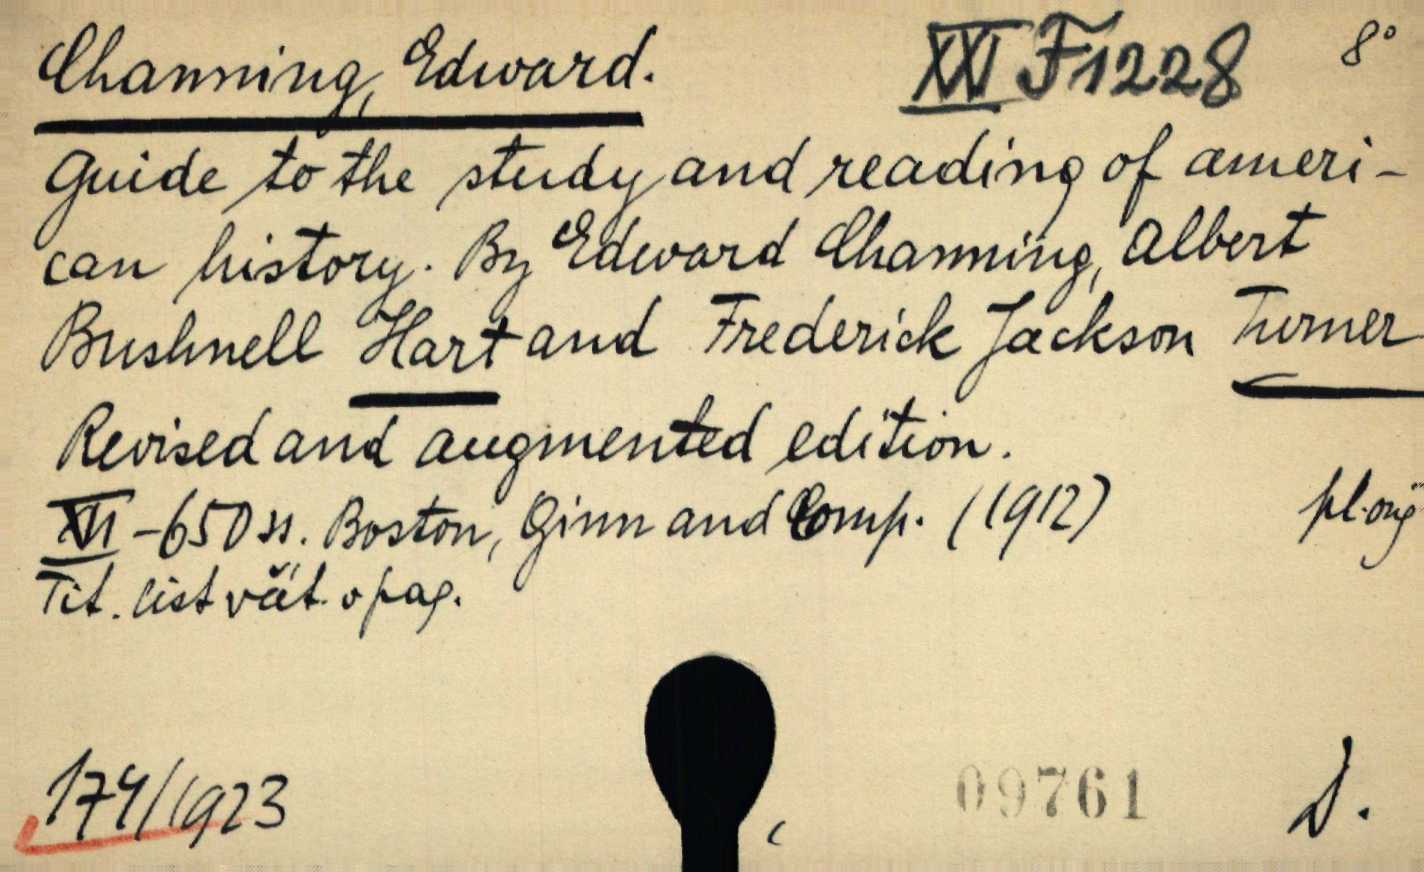 Channing, Edward. XXI F1228 8°
Guide to the study and reading of ameri-
can history. By Edward Channing, Albert
Bushnell Hart and Frederick Jackson Turner
Revised and augmented edition.
XVI-650 ss. Boston, Ginn and Comp. (1912) pl. orig
Tit. list vät. v pag.
174/1923 09761 D.